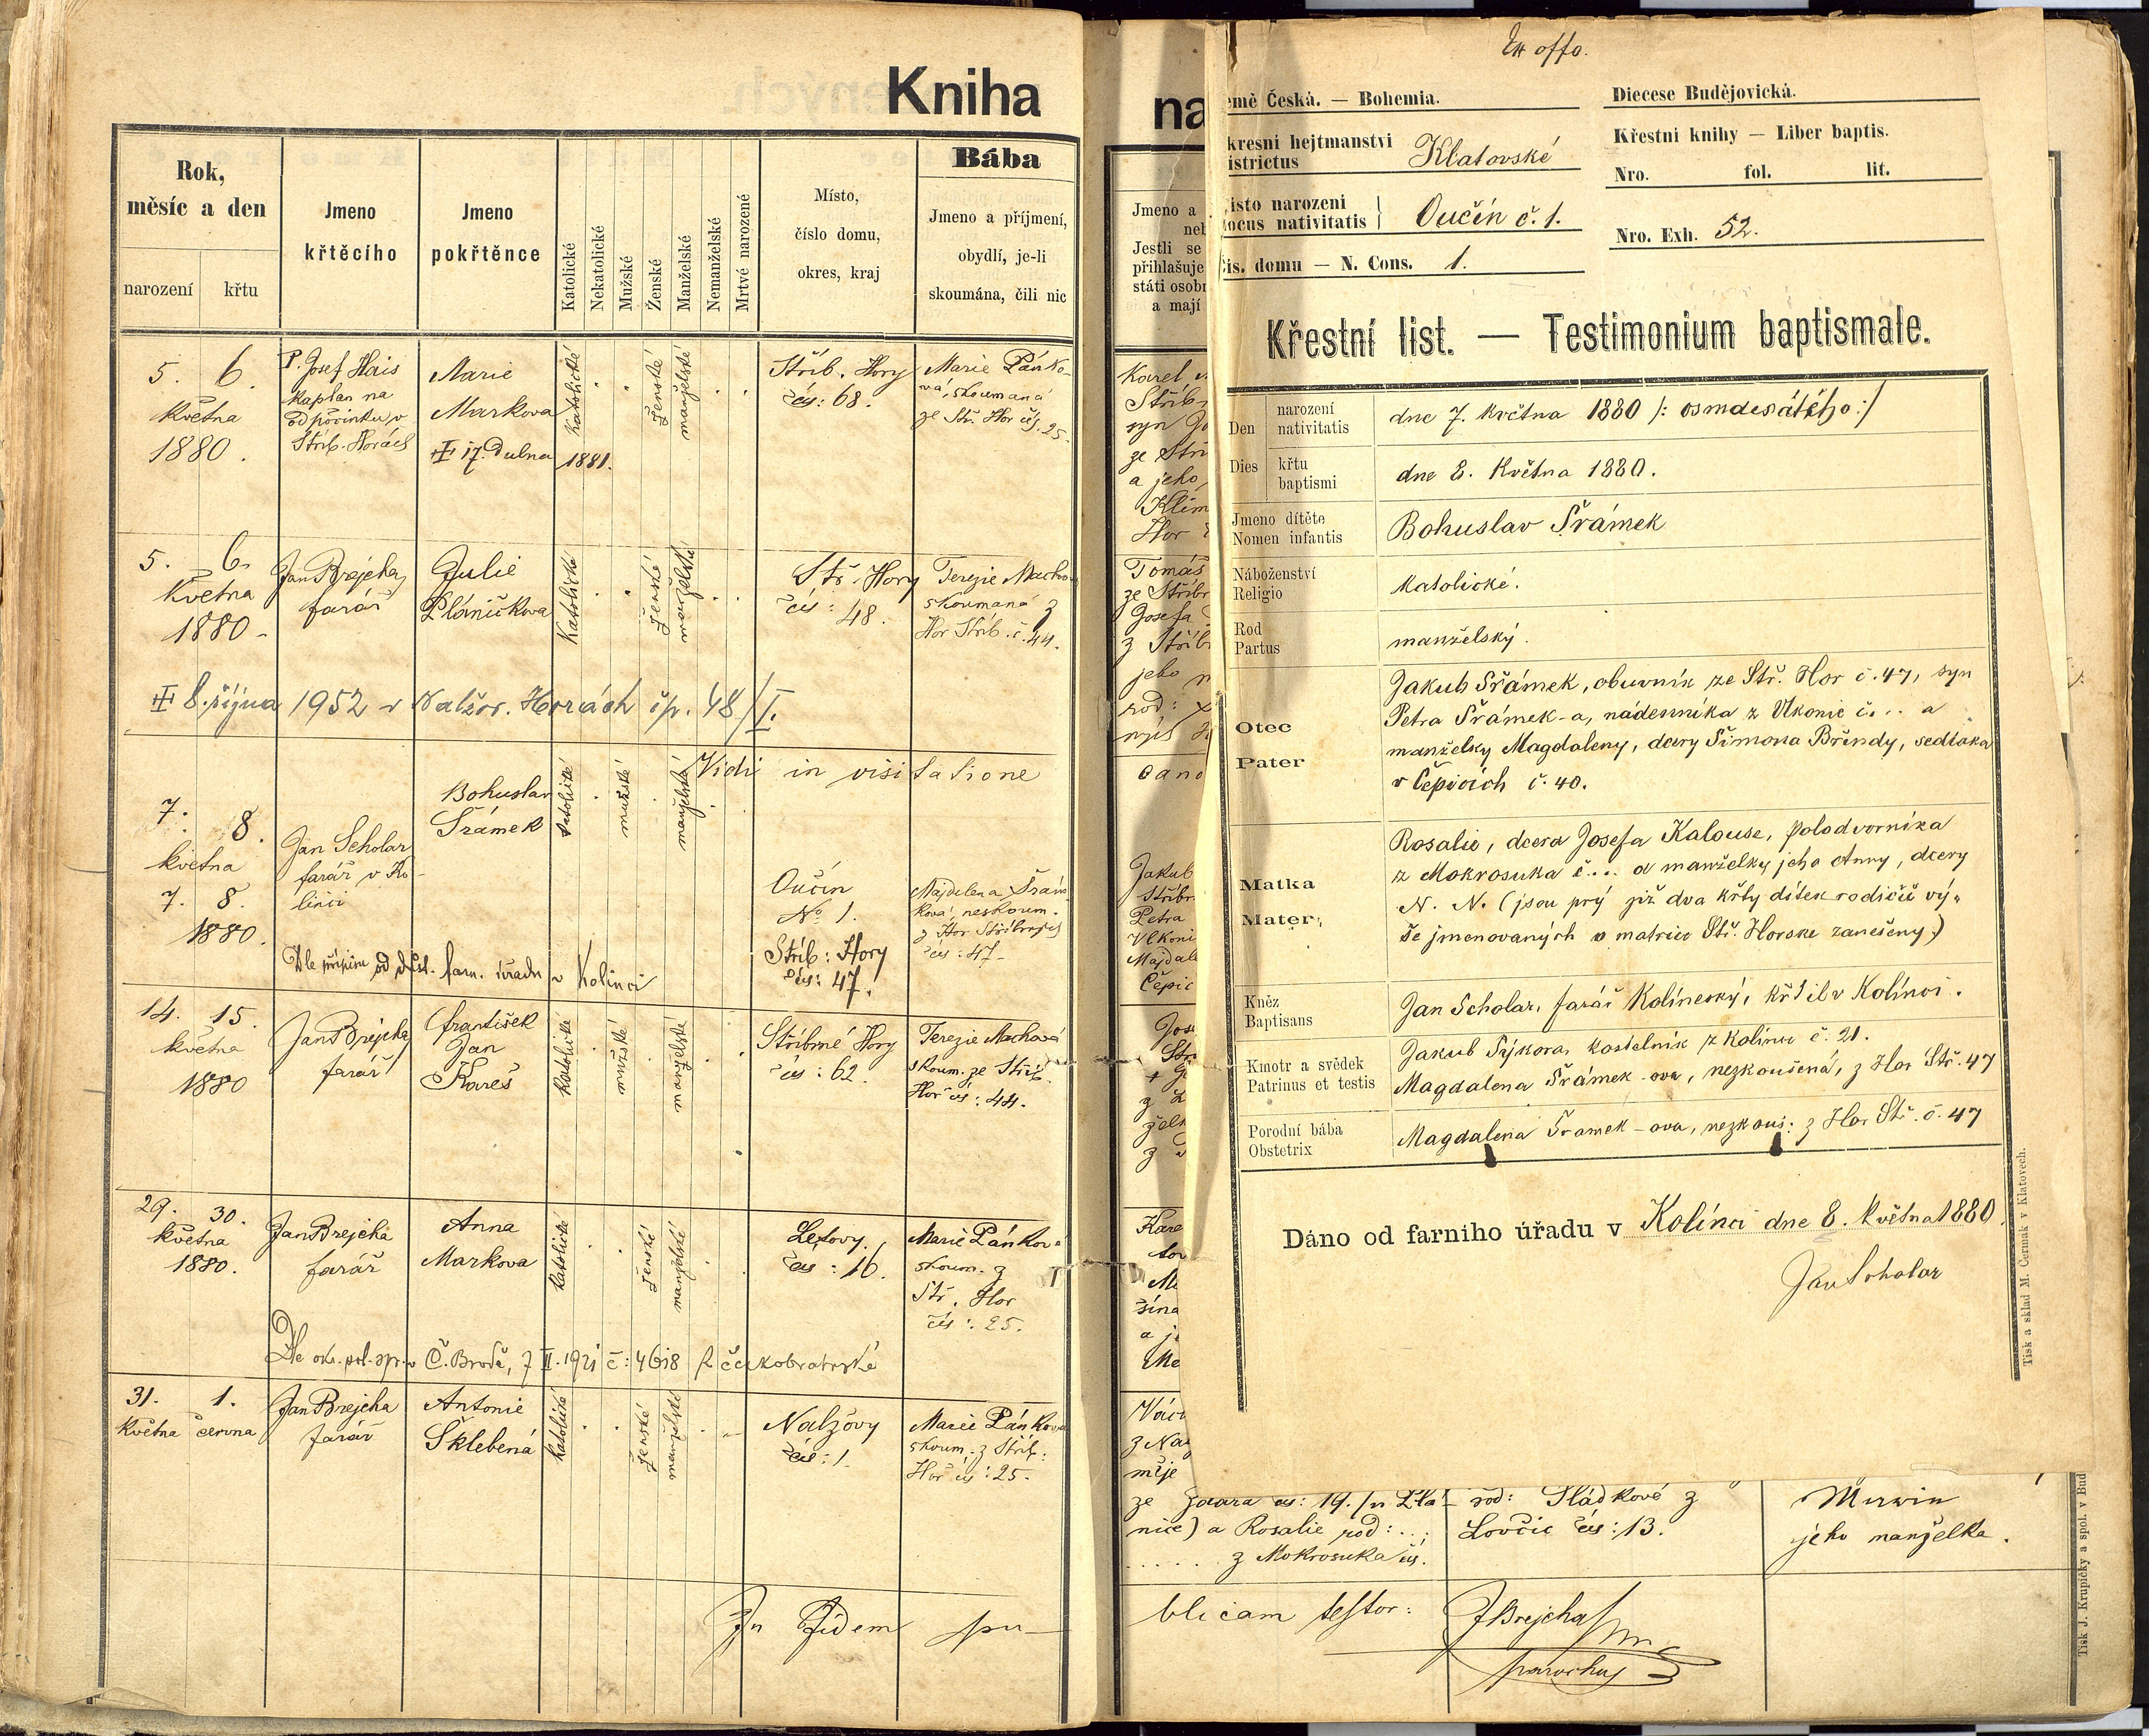 Kniha
Rok,
měsíc a den
narození
křtu
Jmeno
křtěcího
Jmeno
pokřtěnce
Katolické
Nekatolické
Mužské
Ženské
Manželské
Nemanželské
Mrtvé narozené
Místo,
číslo domu,
okres, kraj
Bába
Jmeno a příjmení,
obydlí, je-li
skoumána, čili nic
5. 6.
Května
1880.
P. Josef Hais
Kaplan na
odpočinku v
Stříb. Horách
Marie
Markova
17. Dubna 1881.
Katolické
ženské
manželské
Stříb. Hory
čís: 68.
Marie Pánko-
vá, skoumaná
ze Stř. Hor čís. 25.
5. 6.
Května
1880
Jan Brejcha,
farář
Julie
Pláničkova
Katolické
ženské
manželské
Stř. Hory
čís: 48.
Terezie Machov
skoumaná z
Hor Stříb. č. 44.
8. října 1952 v Nalžov. Horách čp. 48/I.
Vidi in visitatione
7. 8.
května
7. 8.
1880.
Jan Scholar
farář v Ko-
linci
Bohuslav
Šrámek
katolické
mužské
manželské
Oučín
No 1.
Stříb: Hory
čís: 47.
Majdalena Šrám
ková, neskoum.
z Hor Stříbrných
čís: 47.
Dle přípisu od důst. farn. úřadu v Kolinci
14. 15.
května
1880
Jan Brejcha
farář
František
Jan
Kareš
katolické
mužské
manželské
Stříbrné Hory
čís: 62.
Terezie Machová
skoum. ze Stříb.
Hor čís: 44.
29. 30.
května
1880.
Jan Brejcha
farář
Anna
Markova
katolické
ženské
manželské
Letovy
čís: 16.
Marie Pánkov
skoum. z
Stř. Hor
čís: 25.
Dle okr. pol. spr. v Č. Brodě, 7 II. 1921 č: 4618 k českobratrské
31. 1.
Května června
Jan Brejcha
farář
Antonie
Šklebená
katolické
ženské
manželské
Nalžovy
čís: 1.
Marie Pánkova
skoum. z Stříb:
Hor čís: 25.
In fidem pu-
na
Jmeno a
Jestli se
přihlašuje
státi osobn
a mají
Karel
Stříb
syn
ze Stř
a jeho
Klim
Hor
Tomáš
ze Stříbr
Josefa
z Stříb
jeho
rod:
nyní
cano
Jakub
Stříbr
Petra
Vlkoni
Majdal
Čepic
ze Zdara čís: 19. /u Zla-
nice) a Rosalie rod:...
..... z Mokrosuka čís.
rod: Sládkové z
Lovčic čís: 13.
jeho manželka.
blicam testor:
JBrejcha
parochus
Tisk J. Krupičky a spol. v Bud
Ex offo.
emě Česká. — Bohemia.
kresní hejtmanství
istrictus
Klatovské
ísto narození
ocus nativitatis
Oučín č. 1.
čís. domu — N. Cons. 1.
Diecese Budějovická.
Křestní knihy — Liber baptis.
Nro. fol. lit.
Nro. Exh. 52.
Křestní list. — Testimonium baptismale.
Den
Dies
narození
nativitatis
dne 7. května 1880 /: osmdesátého :/
křtu
baptismi
dne 8. Května 1880.
Jmeno dítěte
Nomen infantis
Bohuslav Šrámek
Náboženství
Religio
Katolické.
Rod
Partus
manželský.
Otec
Pater
Jakub Šrámek, obuvník ze Stř. Hor č. 47, syn
Petra Šrámek-a, nádenníka z Vlkonic č... a
manželky Magdaleny, dcery Šimona Břindy, sedláka
v Čepicích č. 40.
Matka
Mater,
Rosalie, dcera Josefa Kalouse, polodvorníka
z Mokrosuka č.... a manželky jeho Anny, dcery
N. N. (jsou prý již dva křty dítek rodičů vý-
še jmenovaných v matrice Stř. Horske zanešeny.)
Kněz
Baptisans
Jan Scholar, farář Kolínecký, křtil v Kolínci.
Kmotr a svědek
Patrinus et testis
Jakub Sýkora, kostelník z Kolince č. 21.
Magdalena Šrámek-ova, nezkoušená, z Hor Stř. 47
Porodní bába
Obstetrix
Magdalena Šramek-ova, nezkouš: z Hor Stř. č. 47
Dáno od farního úřadu v Kolínci dne 8. května 1880.
Jan Scholar
Tisk a sklad M. Čermák v Klatovech.